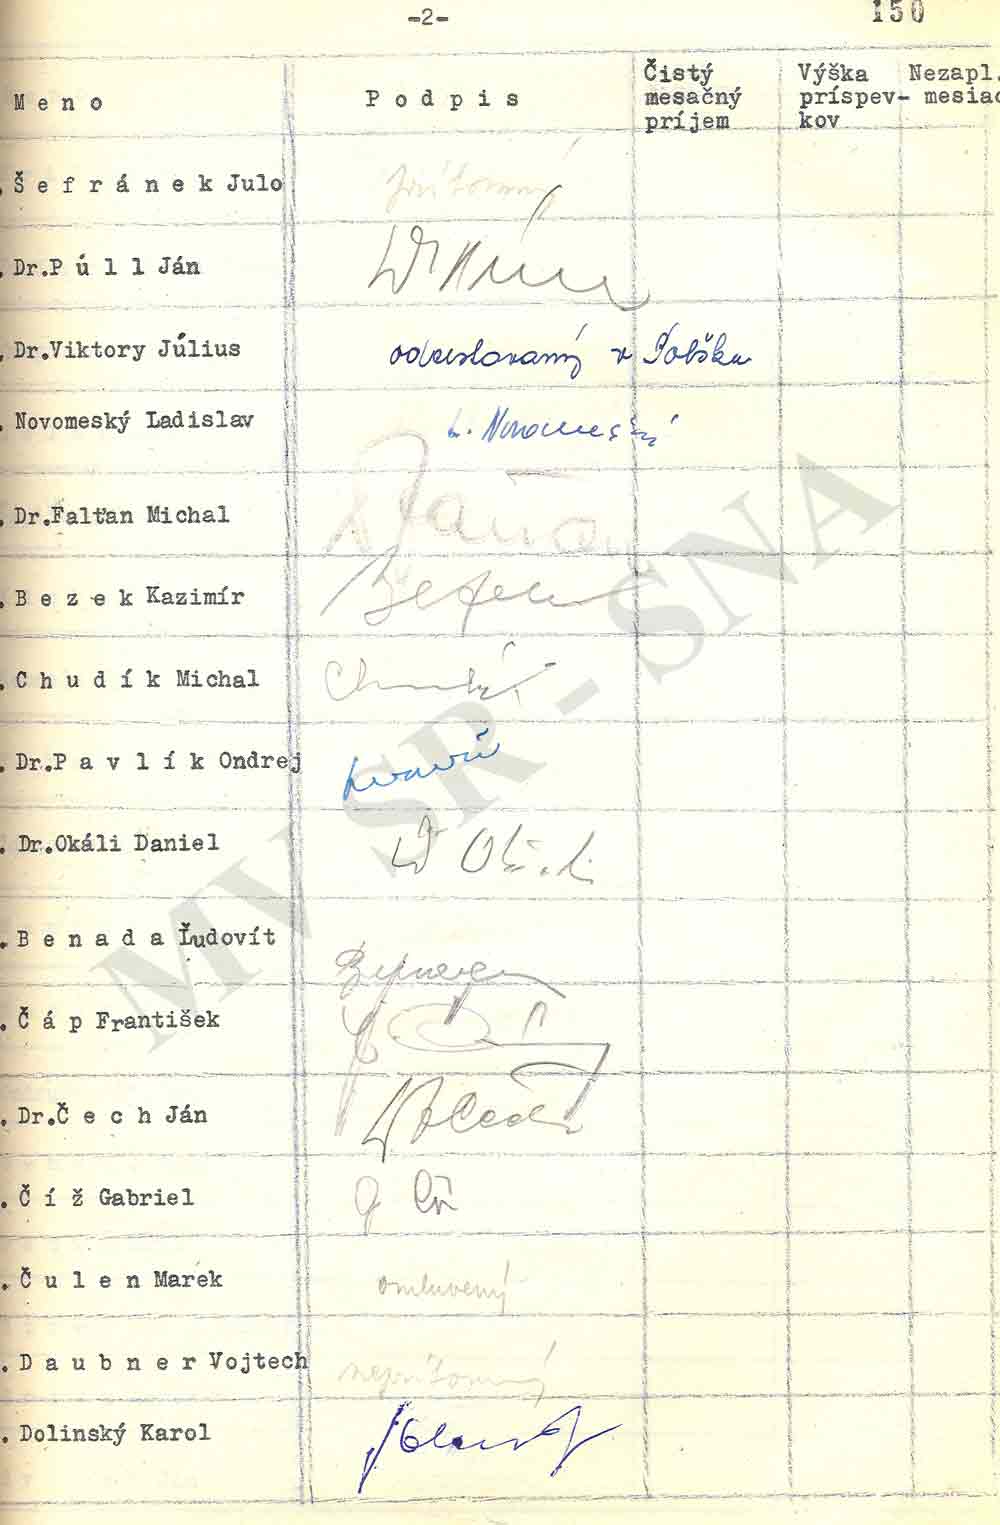 -2-
150
Meno Podpis Čistý mesačný príjem Výška príspev- kov Nezapl. mesiac
. Šefránek Julo prítomný
. Dr.Púll Ján
. Dr.Viktory Július odcestovaný v Poľsku
. Novomeský Ladislav L. Novomeský
. Dr.Falťan Michal
. Bezek Kazimír Bezek
. Chudík Michal Chudík
. Dr.Pavlík Ondrej
. Dr.Okáli Daniel Dr Okáli
. Benada Ľudovít
. Čáp František
. Dr.Čech Ján
. Číž Gabriel G Číž
. Čulen Marek omluvený
. Daubner Vojtech neprítomný
. Dolinský Karol
MV SR - SNA